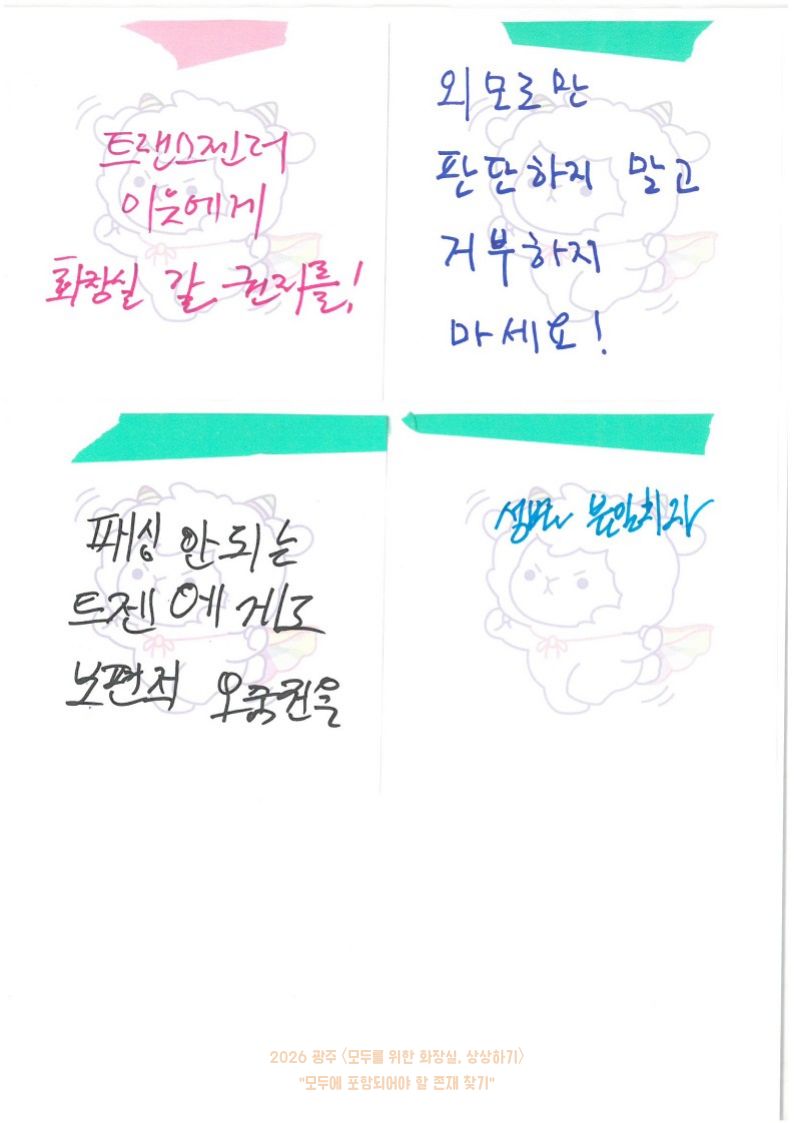 트랜스젠더
이웃에게
화장실 갈 권리를!
외모로만
판단하지 말고
거부하지
마세요!
패싱 안되는
트젠에게도
보편적 오줌권을
성별 불일치자
2026 광주 <모두를 위한 화장실, 상상하기>
"모두에 포함되어야 할 존재 찾기"